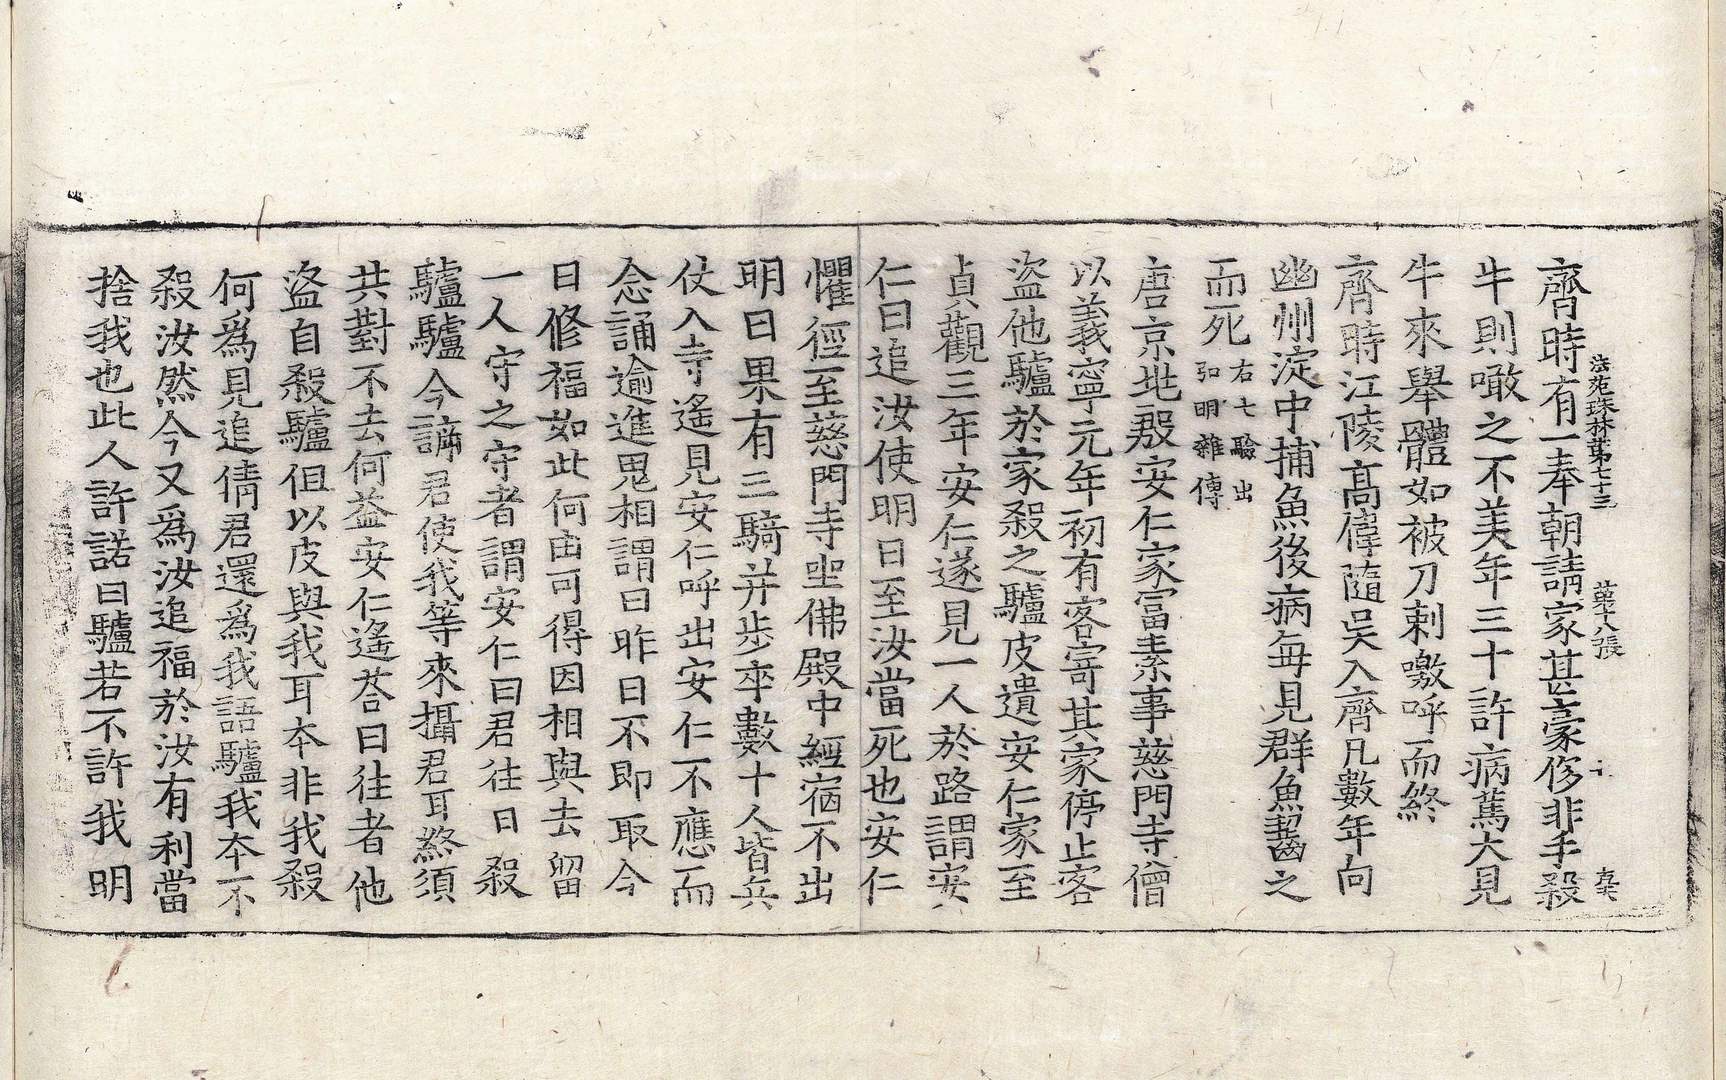 法苑珠林第七十三 第十八張
齊時有一奉朝請家甚豪侈非手殺
牛則噉之不美年三十許病篤大見
牛來舉體如被刀刺噭呼而終
齊時江陵高偉隨吳入齊凡數年向
幽州淀中捕魚後病每見群魚齧之
而死 右七驗出
弘明雜傳
唐京兆殷安仁家富素事慈門寺僧
以義寧元年初有客寄其家停止客
盜他驢於家殺之驢皮遺安仁家至
貞觀三年安仁遂見一人於路謂安
仁曰追汝使明日至汝當死也安仁
懼徑至慈門寺坐佛殿中經宿不出
明日果有三騎并步卒數十人皆兵
仗入寺遙見安仁呼出安仁不應而
念誦逾進鬼相謂曰昨日不即取今
日修福如此何由可得因相與去留
一人守之守者謂安仁曰君往日殺
驢驢今謫君使我等來攝君耳終須
共對不去何益安仁遙荅曰往者他
盜自殺驢但以皮與我耳本非我殺
何爲見追倩君還爲我語驢我本不
殺汝然今又爲汝追福於汝有利當
捨我也此人許諾曰驢若不許我明